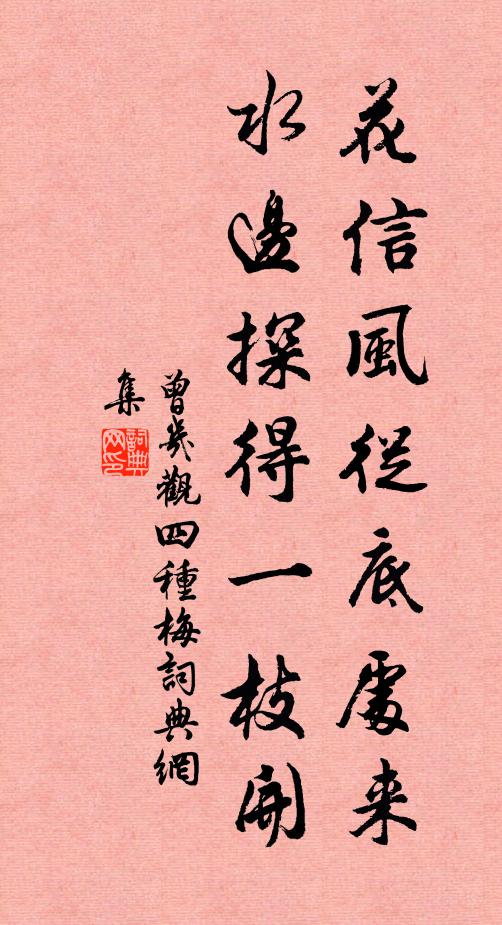 花信風從底處来
水邊探得一枝開
曾幾觀四種梅詞典網
集
詞典
网印